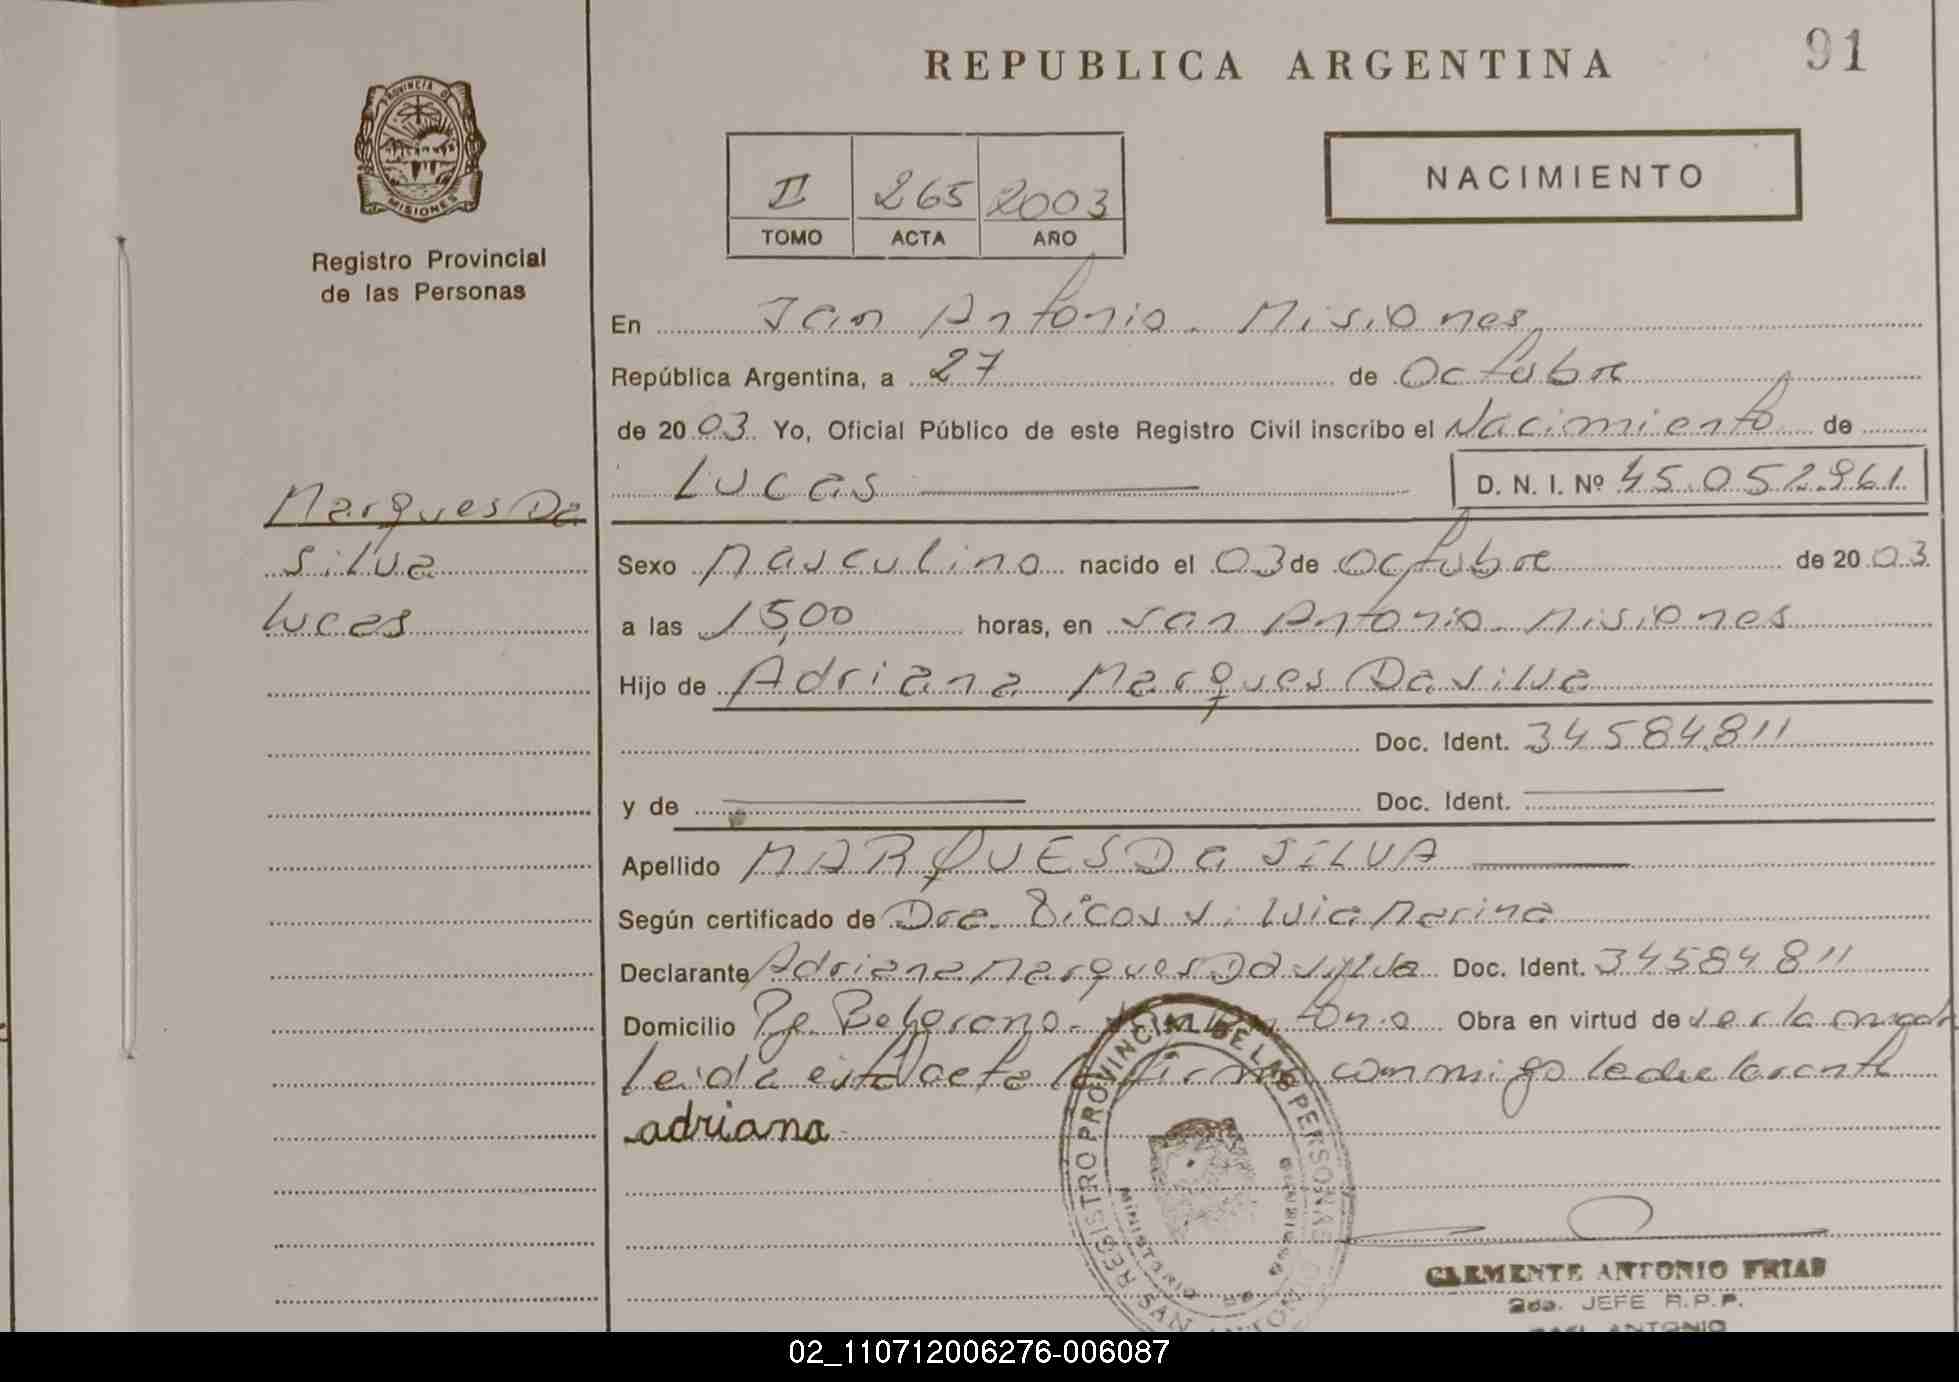 REPUBLICA ARGENTINA
91
PROVINCIA DE
MISIONES
Registro Provincial
de las Personas
II 265 2003
TOMO ACTA AÑO
NACIMIENTO
En San Antonio - Misiones
República Argentina, a 27 de Octubre
de 2003 Yo, Oficial Público de este Registro Civil inscribo el Nacimiento de
Lucas D. N. I. Nº 45.052.961
Marques Da
Silva
Lucas
Sexo Masculino nacido el 03 de Octubre de 2003
a las 15,00 horas, en San Antonio - Misiones
Hijo de Adriana Marques Da Silva
Doc. Ident. 34584811
y de Doc. Ident.
Apellido MARQUES Da SILVA
Según certificado de Dra. Luisa Marina
Declarante Adriana Marques Da Silva Doc. Ident. 34584811
Domicilio Belgrano - San Antonio Obra en virtud de ser la madre
Leida esta acta la firma conmigo la declarante
adriana
REGISTRO PROVINCIAL DE LAS PERSONAS
MINISTERIO DE GOBIERNO
SAN ANTONIO
CLEMENTE ANTONIO FRIAS
2do. JEFE R.P.P.
SAN ANTONIO
02_110712006276-006087